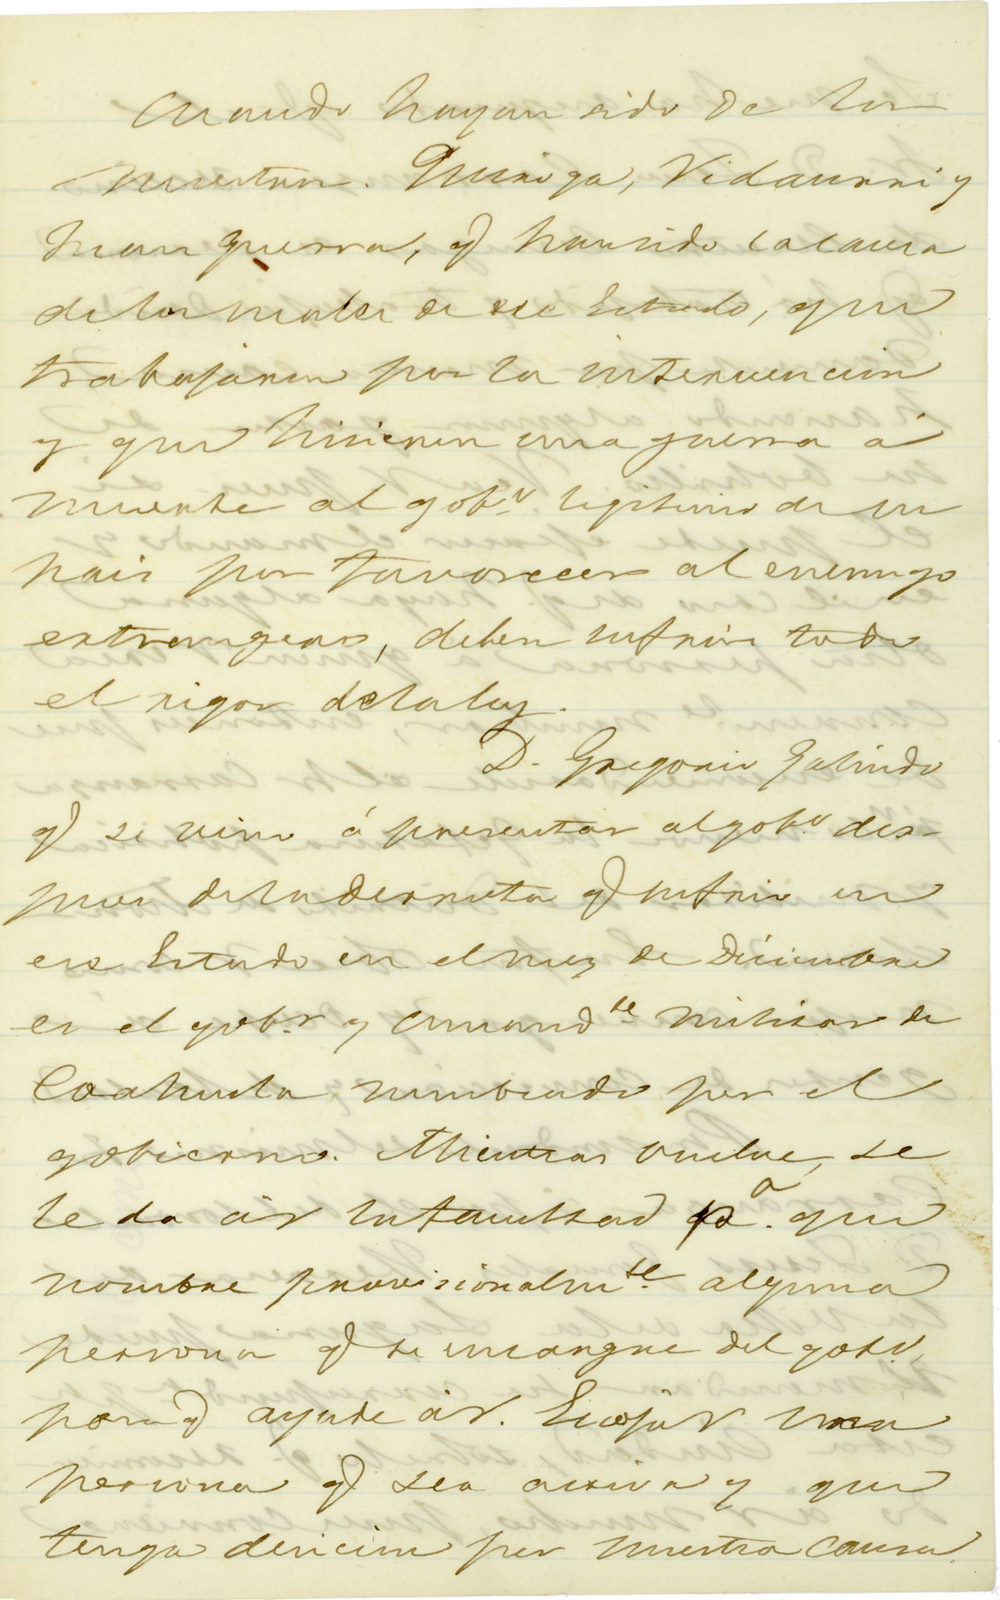 cuando hayan sido de los
nuestros. Quiroga, Vidaurri y
Juan Guerra, q. han sido la causa
de los males de ese Estado, que
trabajaron por la intervencion
y que hicieron una guerra á
muerte al gob.º legitimo de su
pais por favorecer al enemigo
extrangero, deben sufrir todo
el rigor de la ley.
D. Gregorio Galindo
q. se vino á presentar al gob.º des-
pues de la derrota q. sufrio en
ese Estado en el mes de Diciembre
es el gob.r y comand.te militar de
Coahuila nombrado por el
gobierno. Mientras vuelve, se
le da á V. la facultad pª. que
nombre provisionalm.te alguna
persona q. se encargue del gob.º,
para q. ayude á V. Escoja V. una
persona q. sea activa y que
tenga decision por nuestra causa.